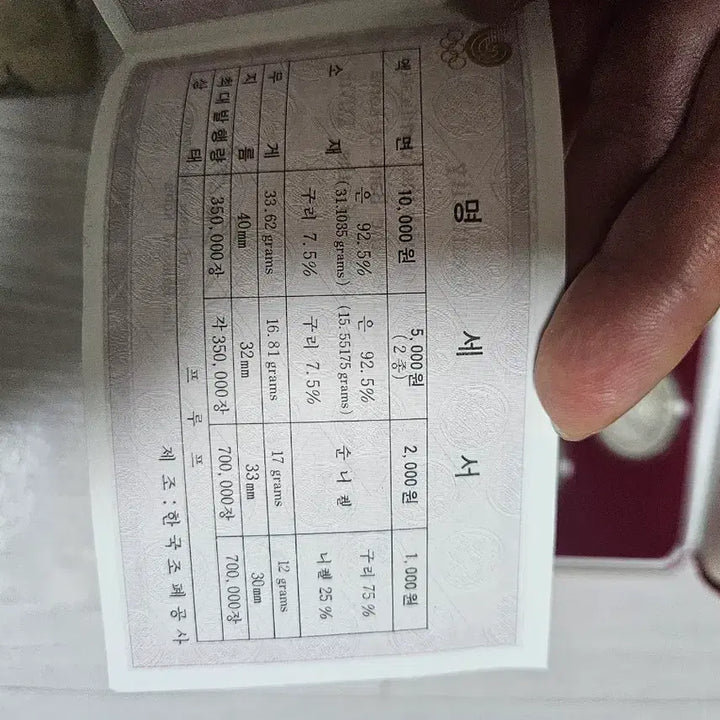 명 세 서
액 면 10,000원 5,000원 2,000원 1,000원
(2종)
소 재 은 92.5% 은 92.5% 순 니 켈 구리 75%
(31.1035 grams) (15.55175 grams) 니켈 25%
구리 7.5% 구리 7.5%
무 게 33.62 grams 16.81 grams 17 grams 12 grams
지 름 40mm 32mm 33mm 30mm
최대발행량 350,000장 각 350,000장 700,000장 700,000장
상 태 프 루 프
제 조 : 한 국 조 폐 공 사